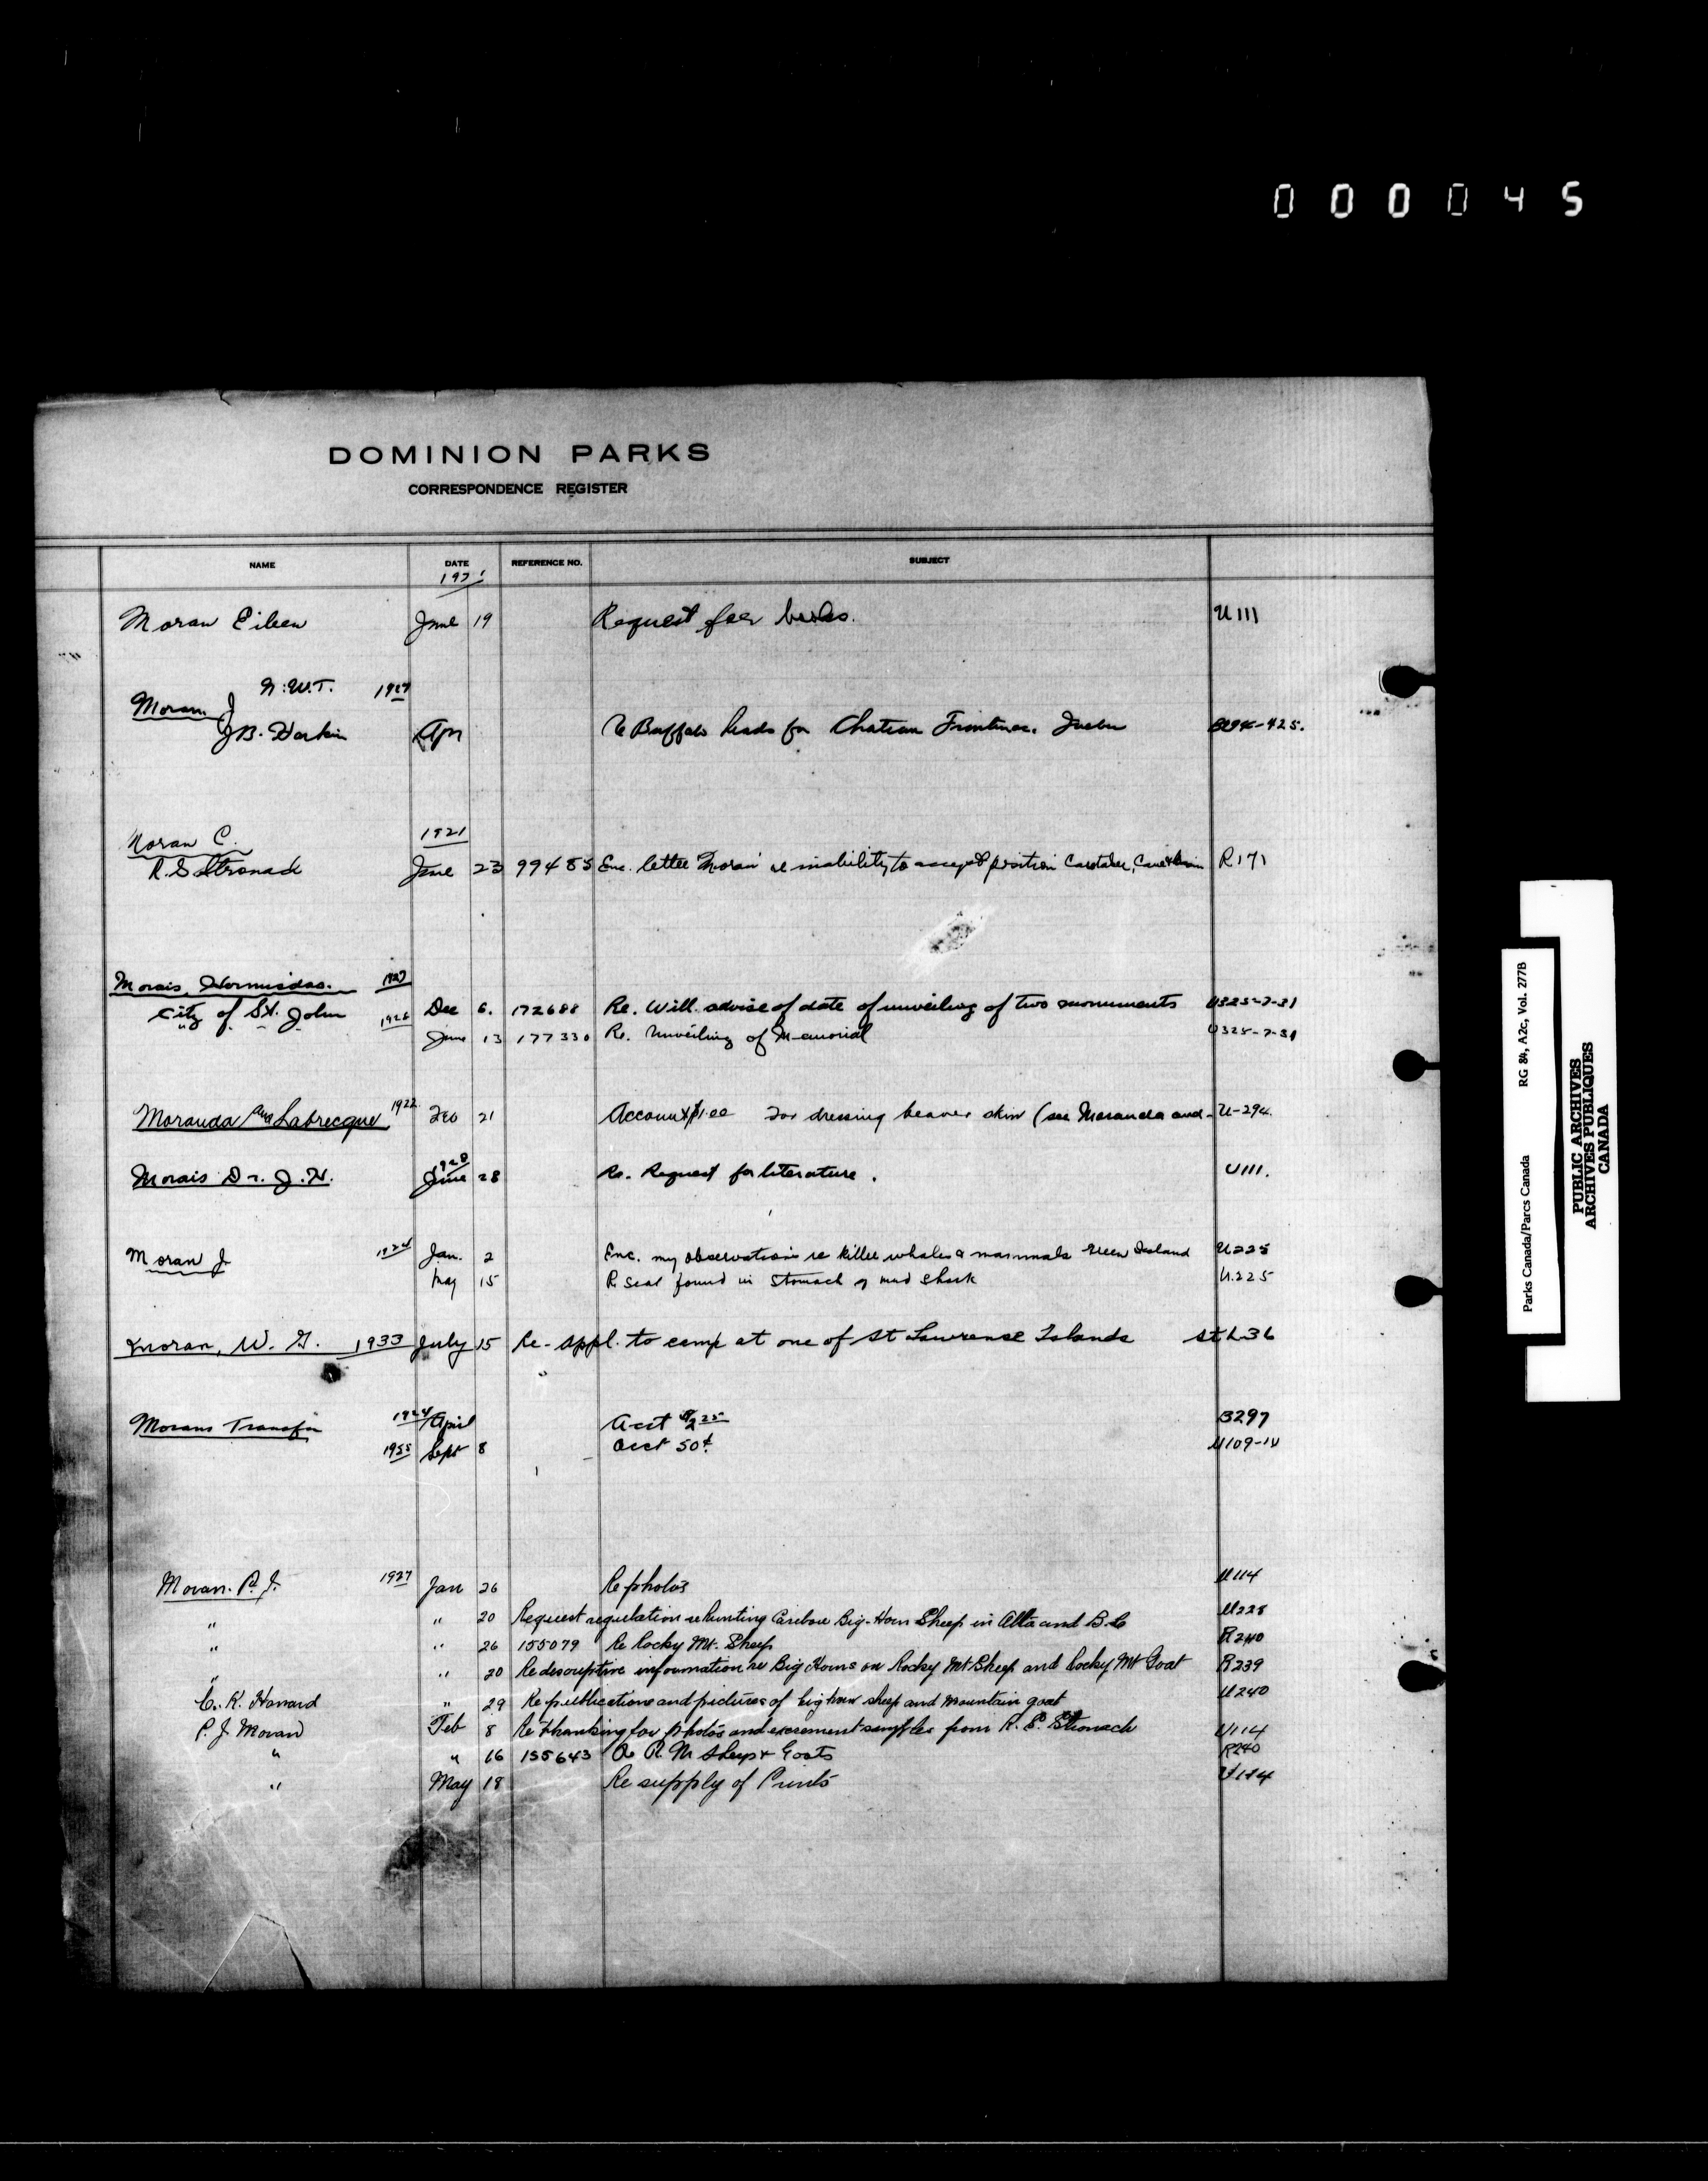 000045
DOMINION PARKS
CORRESPONDENCE REGISTER
NAME DATE REFERENCE NO. SUBJECT
Moran Eileen June 19 Request for books. U 111
N.W.T. 1927
Moran J
J B. Harkin Apr Re Buffalo heads for Chateau Frontenac. Quebec
Moran C. 1921
R. S. Stronach June 23 99485 Enc. letter Moran re inability to accept position Caretaker, R 171
Morais, Hormisdas. 1927
City of St. John Dec 6. 172688 Re. Will advise of date of unveiling of two monuments U325-7-31
June 13 177330 Re. Unveiling of Memorial U325-7-31
Moranda and Labrecque 1922 Feb 21 Account $1.00 For dressing beaver skin (see Moranda and- U-294
1928
Morais Dr. J. H. June 28 Re. Request for literature. U111.
Moran J. 1924 Jan. 2 Enc. my observations re killer whales & mammals Green Island U225
May 15 Re seal found in stomach of mud shark U.225
Moran, W. G. 1933 July 15 Re- appl. to camp at one of St Lawrence Islands St L36
Morans Transfer 1924 April Acct $2.25 B297
Sept 8 Acct 50¢ U109-14
Moran. P. J. 1927 Jan 26 Re photos U114
" " 20 Request regulation re hunting Caribou Big-Horn Sheep in Alta and B.C U228
" " 26 155079 Re Rocky Mt. Sheep R240
" " 20 Re descriptive information re Big Horns or Rocky Mt Sheep and Rocky Mt Goat R239
C. K. Howard " 29 Re publications and pictures of big horn sheep and mountain goat U240
P. J. Moran Feb 8 Re thanking for photos and excrement samples from R. S. Stronach U114
" " 16 155643 Re R. M Sheep & Goats R240
" May 18 Re supply of Prints U114
Parks Canada/Parcs Canada RG 84, A2c, Vol. 277B
PUBLIC ARCHIVES
ARCHIVES PUBLIQUES
CANADA